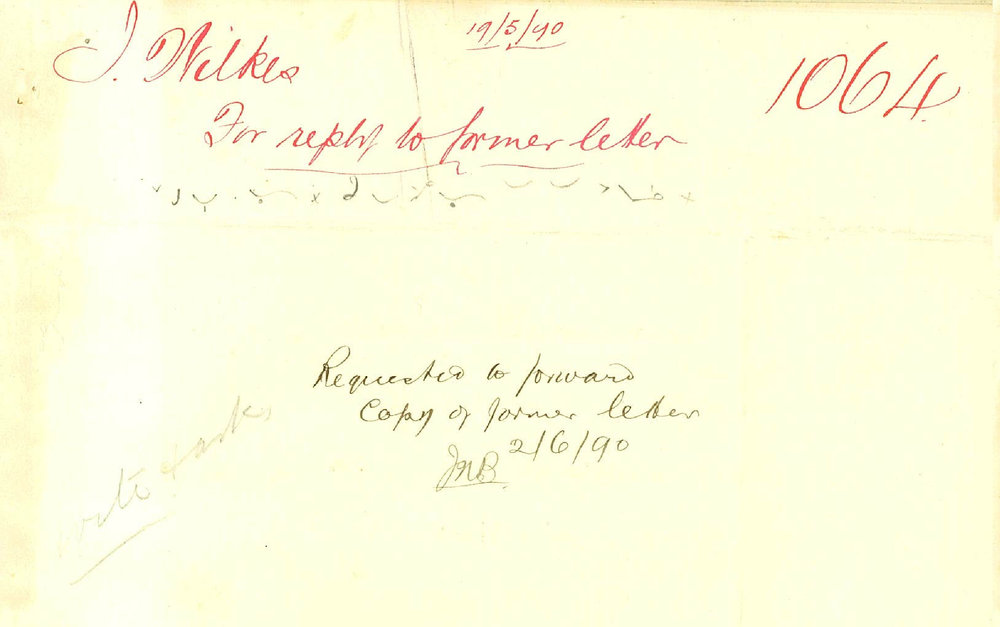 19/5/90
J. Wilkes
1064
For reply to former letter
Requested to forward
Copy of former letter
JNB 2/6/90
write & ask